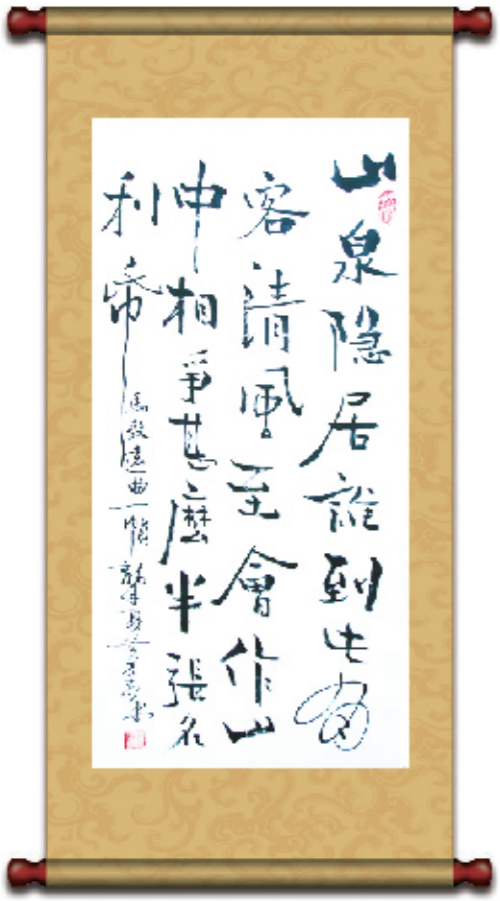 山泉隐居誰到此有
客清風至會作山
中相爭甚麼半張名
利帋
馬致遠曲一